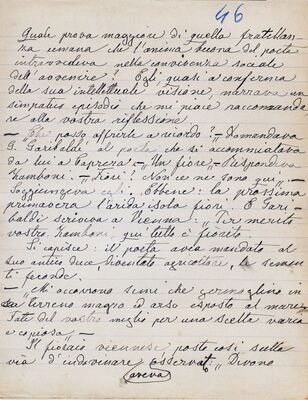 46
Quale prova maggiore di quella fratellan-
za umana che l'anima buona del poeta
intravvedeva nella convivenza sociale
dell'avvenire? Egli quasi a conferma
della sua intellettuale visione, narrava un
simpatico episodio che mi piace raccomanda-
re alla vostra riflessione.
— "Che posso offrirle a ricordo?" Domandava
G. Garibaldi al poeta che si accommiatava
da lui a Caprera. — "Un fiore," — Rispondeva
Zamboni. — "Fiori? Non ce ne sono qui" —
Soggiungeva egli. Ebbene: la prossima
primavera l'arida isola fiorì. E Gari-
baldi scriveva a Vienna: "Per merito
vostro, Zamboni, qui tutto è fiorito.
Si capisce: il poeta avea mandato al
suo antico duce, diventato agricoltore, le semen-
ti feconde.
— "Mi occorrono semi che germoglino in
terreno magro ed arso esposto al mare.
Fate del vostro meglio per una scelta varia
e copiosa" —
Il fioraio viennese posto così sulla
via d'indovinare osservò: "Devono
aveva